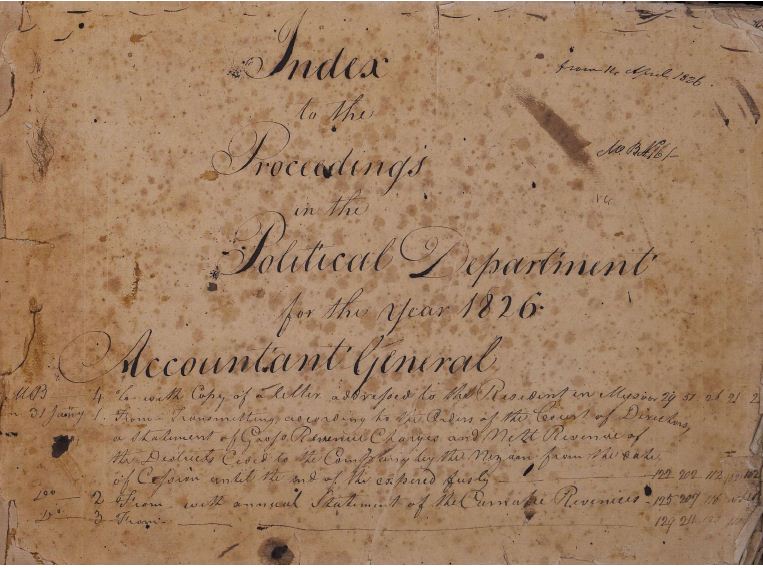 Index
from 14 April, 1826.
to the
Proceedings
in the
Political Department
for the Year 1826
Accountant General
4 to with Copy of a letter addressed to the Resident in Mysoor 29 51 26 21 2
31 Jany 1. From Transmitting according to the Orders of the Court of Directors,
a Statement of Gross Revenue Charges and Nett Revenue of
the Districts Ceded to the Company by the Nizam from the date
of Cession until the end of the expired fusly 122 202 112
100 2 From with annual Statement of the Carnatic Revenues 125 207
3 From 129 211